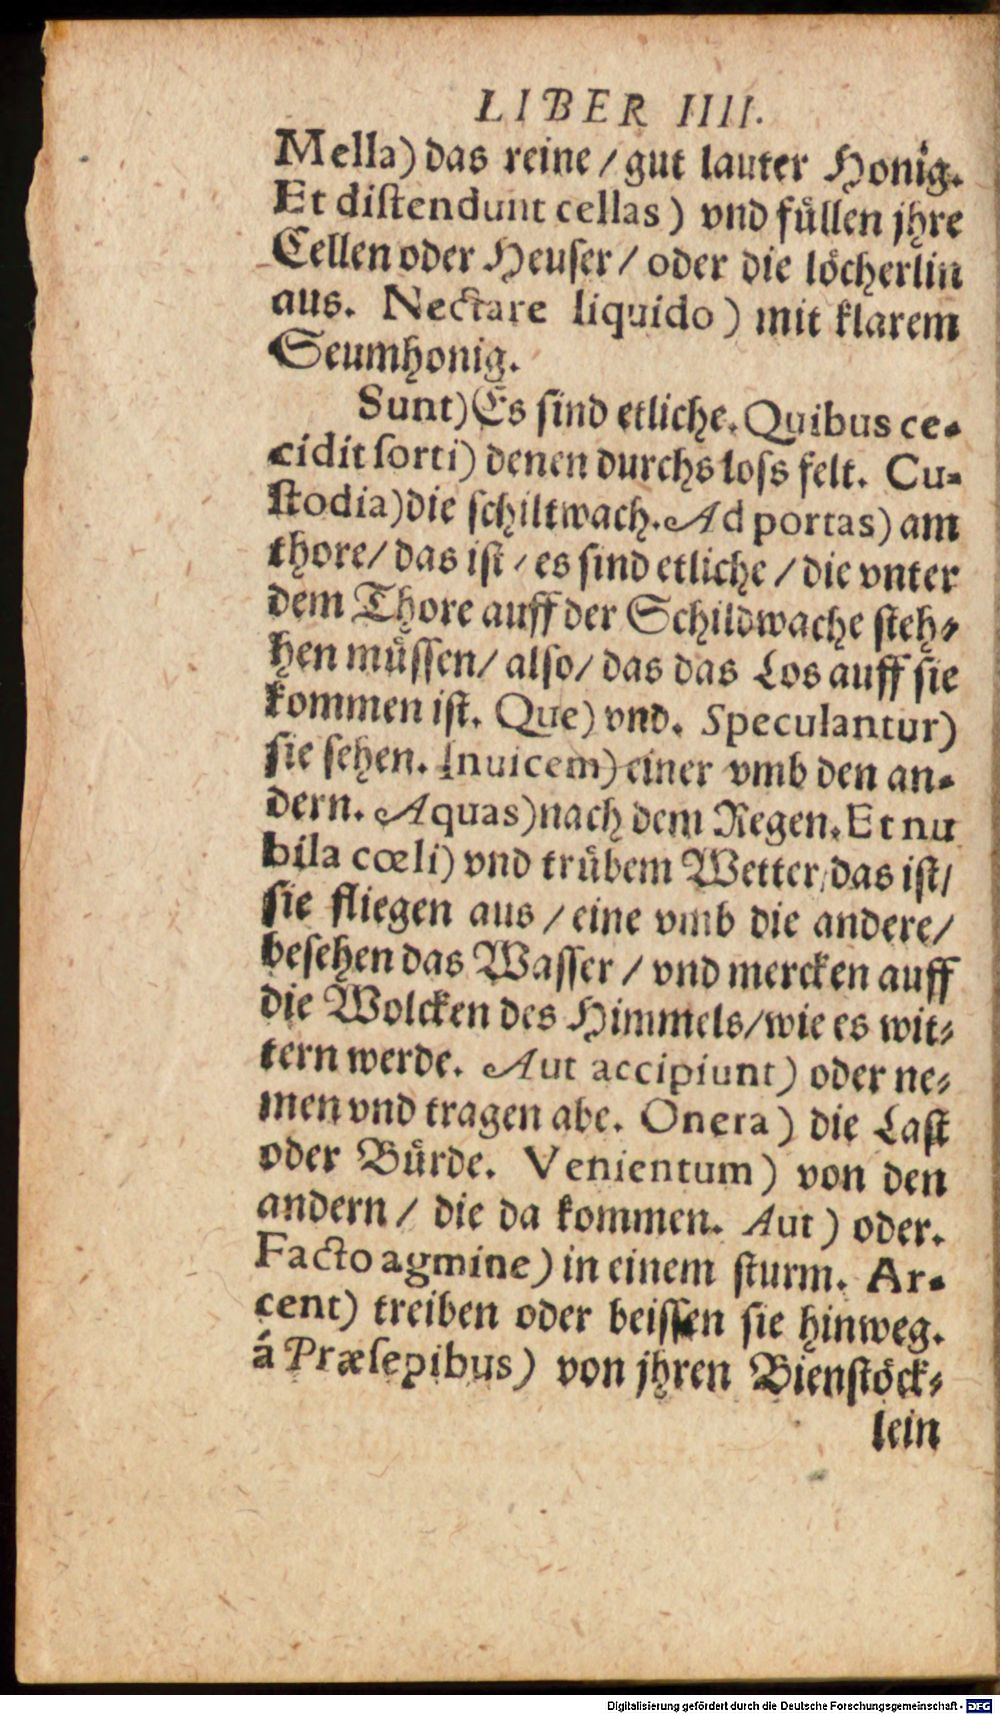 LIBER IIII.
Mella) das reine / gut lauter Honig.
Et diſtendunt cellas) vnd fuͤllen jhre
Cellen oder Heuſer / oder die loͤcherlin
aus. Nectare liquido) mit klarem
Seumhonig.
Sunt) Es ſind etliche. Quibus ce-
cidit ſorti) denen durchs loſs felt. Cu-
ſtodia) die ſchiltwach. Ad portas) am
thore / das iſt / es ſind etliche / die vnter
dem Thore auff der Schildwache ſteh-
hen muͤſſen / alſo / das das Los auff ſie
kommen iſt. Que) vnd. Speculantur)
ſie ſehen. Inuicem) einer vmb den an-
dern. Aquas) nach dem Regen. Et nu
bila cœli) vnd truͤbem Wetter / das iſt /
ſie fliegen aus / eine vmb die andere /
beſehen das Waſſer / vnd mercken auff
die Wolcken des Himmels / wie es wit-
tern werde. Aut accipiunt) oder ne-
men vnd tragen abe. Onera) die Laſt
oder Buͤrde. Venientum) von den
andern / die da kommen. Aut) oder.
Facto agmine) in einem ſturm. Ar-
cent) treiben oder beiſſen ſie hinweg.
á Præſepibus) von jhren Bienſtoͤck-
lein
Digitalisierung gefördert durch die Deutsche Forschungsgemeinschaft - DFG